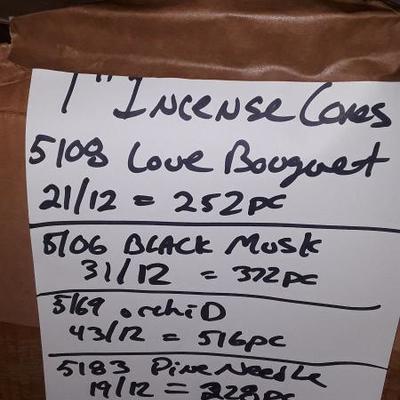 1" Incense Cones
5108 Love Bouquet
21/12 = 252pc
5106 BLACK MUSK
31/12 = 372pc
5169 orchiD
43/12 = 516pc
5183 Pine Needle
19/12 = 228pc